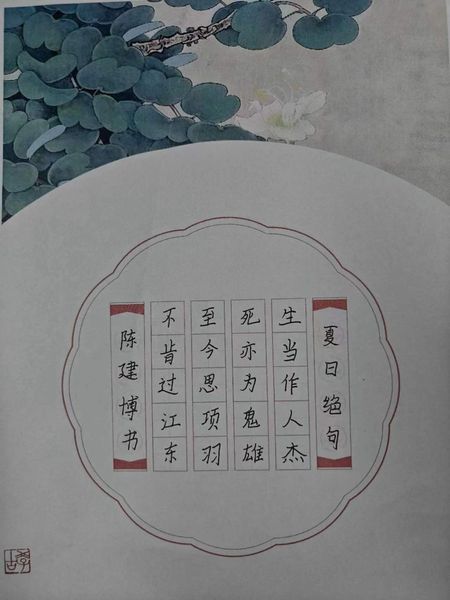 夏日绝句
生当作人杰
死亦为鬼雄
至今思项羽
不肯过江东
陈建博书